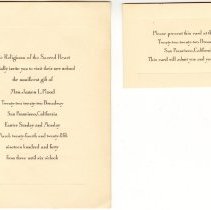 Religious of the Sacred Heart
invite you to visit their new school
the munificent gift of
Mrs. James L. Flood
Twenty-two twenty-two Broadway
San Francisco, California
Easter Sunday and Monday
March twenty-fourth and twenty-fifth
nineteen hundred and forty
from three until six o'clock
Please present this card at the
Twenty-two twenty-two Broadway
San Francisco, California
This card will admit you and your